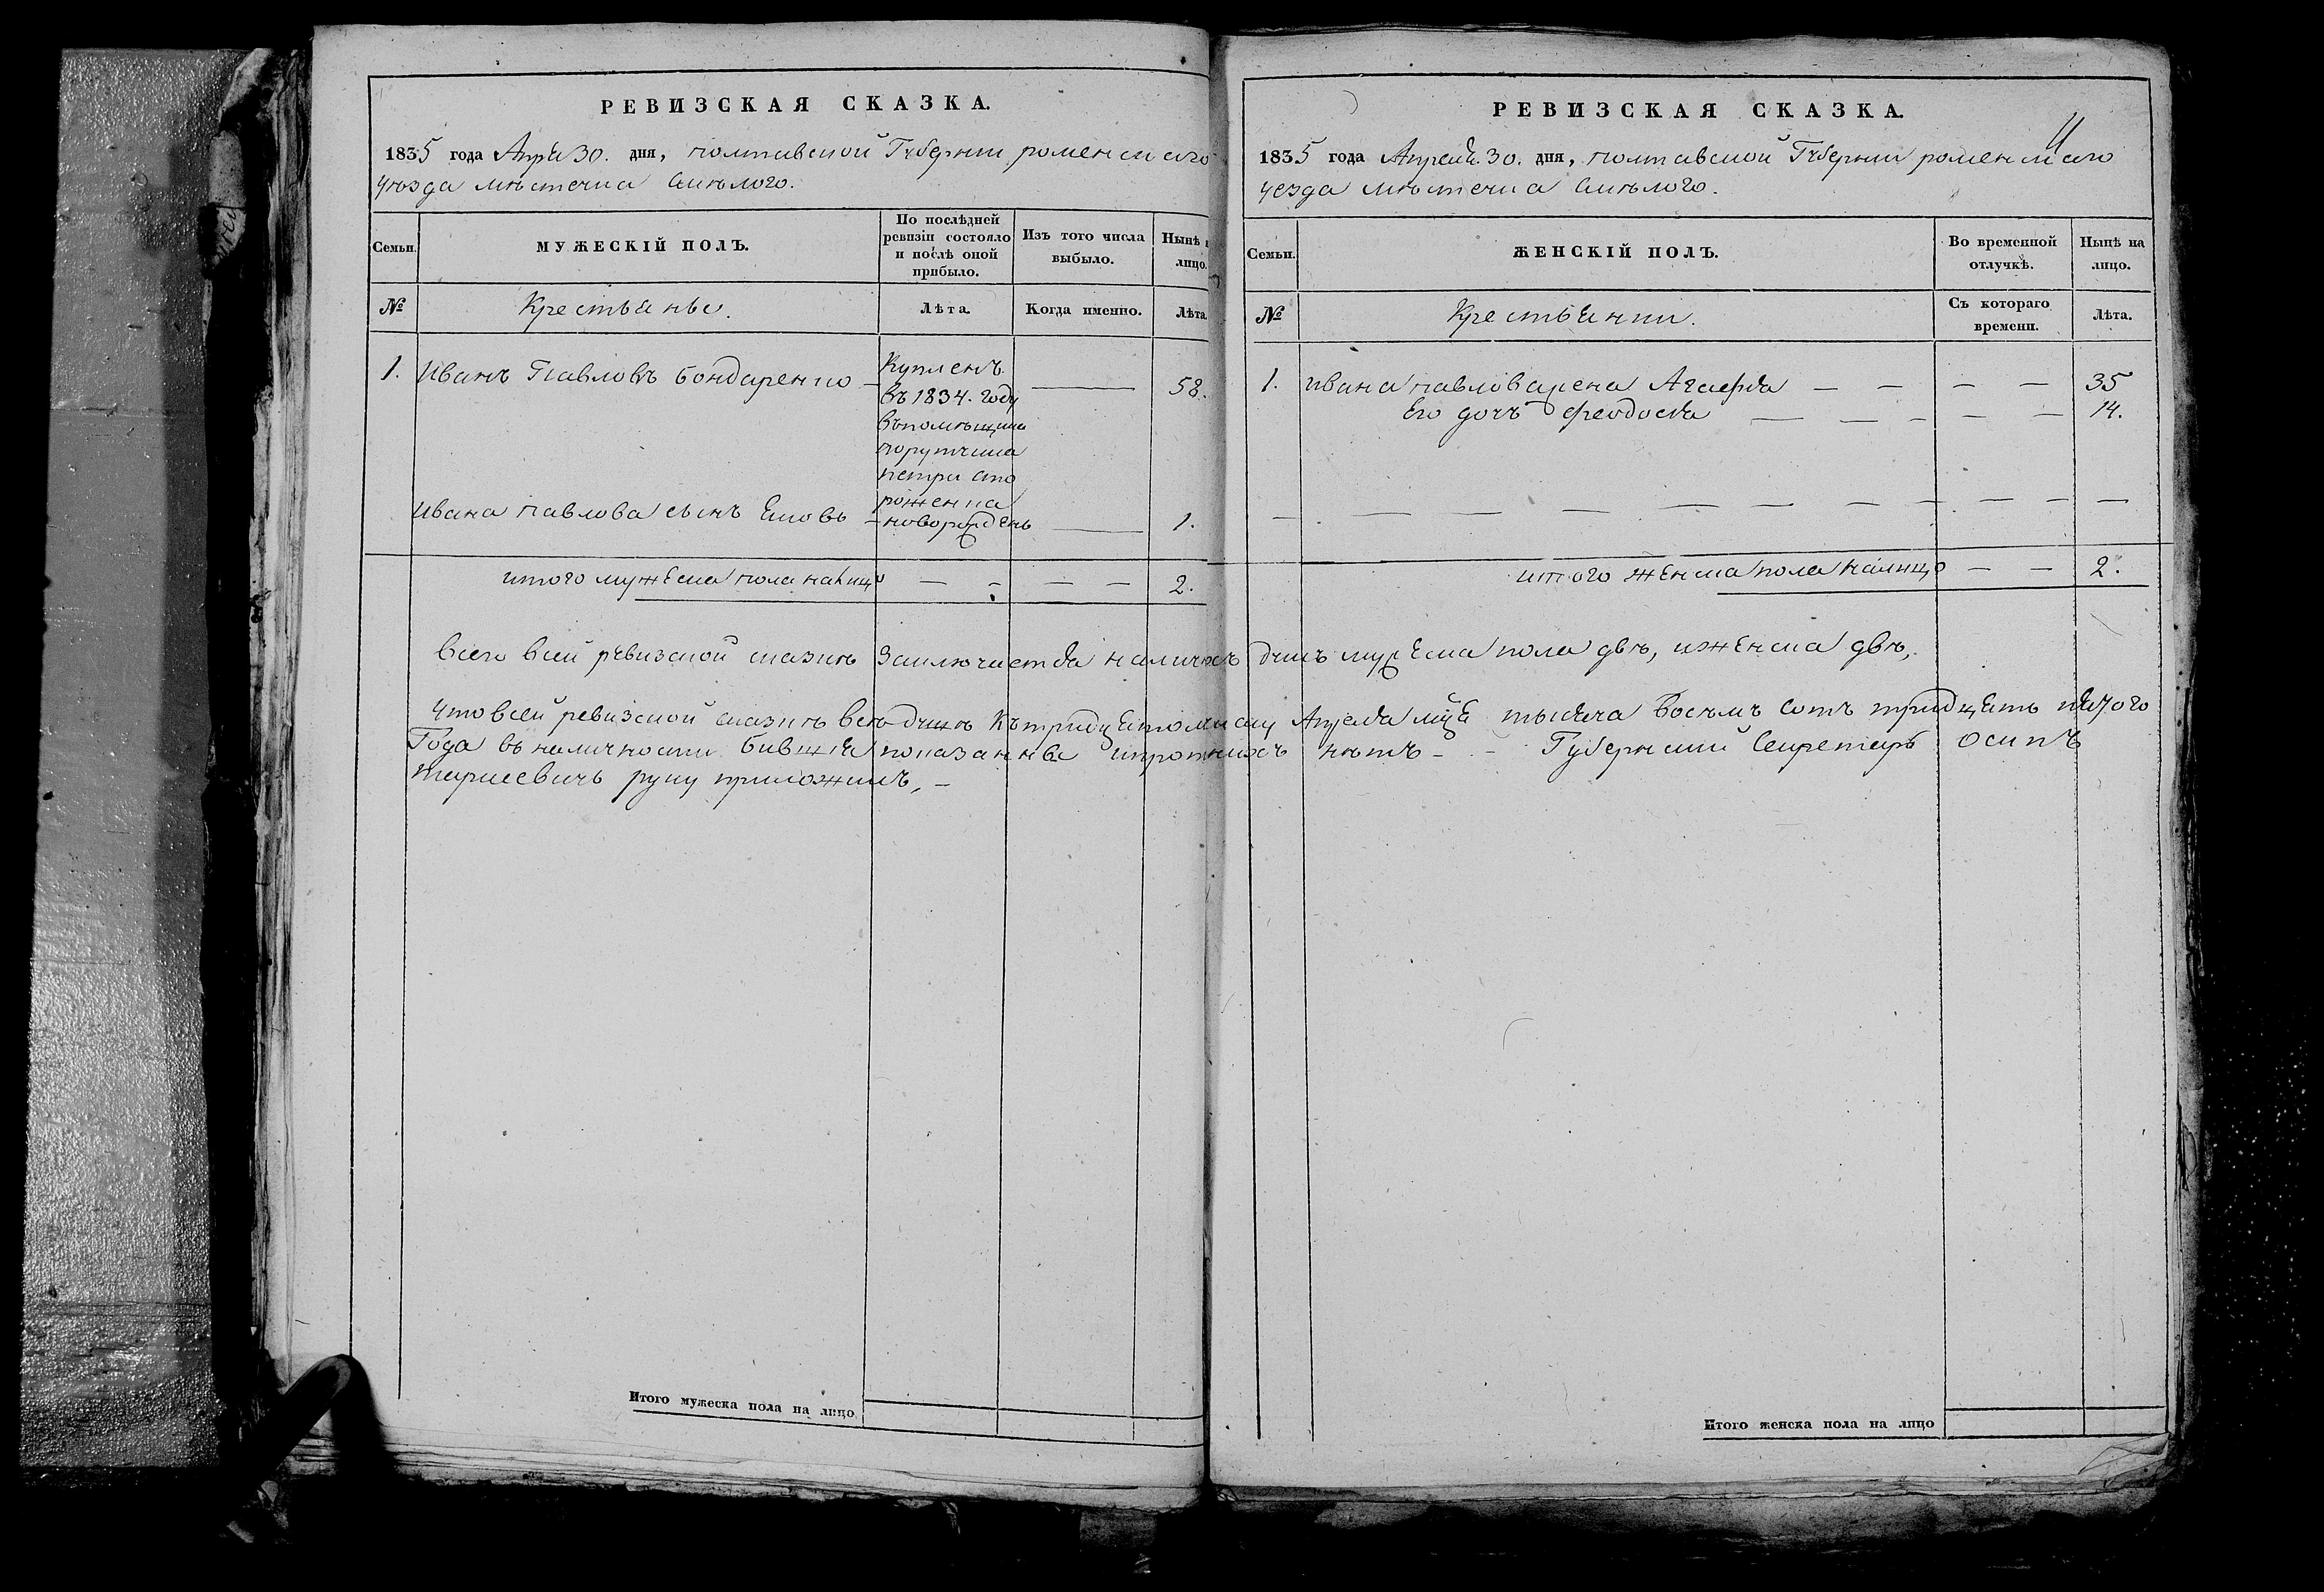 РЕВИЗСКАЯ СКАЗКА.
1835 года Апрѣл 30. дня, полтавской Губернии роменскаго
уѣзда мѣстечка Смѣлого.
Семьи.
МУЖЕСКІЙ ПОЛЪ.
По послѣдней
ревизіи состояло
и послѣ оной
прибыло.
Изъ того числа
выбыло.
Нынѣ
лицо.
№
Крестьяне.
Лѣта.
Когда именно.
Лѣта
1. Иванъ Павловъ Бондаренко – Купленъ — 58.
въ 1834. году
въ помѣщика
порутчика
петра сто
роженка
Ивана павлова сынъ – новорожденъ — 1.
итого мужеска пола налицо — - — — 2.
всего в сей ревизской сказкѣ заключается наличныхъ душъ мужеска пола двѣ, и женска двѣ,
что в сей ревизской сказкѣ всѣ душѣ къ тридцатому числу Апреля тысяча восемъ сотъ тридцять пятого
Года въ наличности бившия показанные нѣтъ - - Губернский Секретарь осипъ
руку приложилъ, -
Итого мужеска пола на лицо
РЕВИЗСКАЯ СКАЗКА.
1835 года Апреля. 30. дня, полтавской Губернии роменскаго
уезда мѣстечка Смѣлого.
Семьи.
ЖЕНСКІЙ ПОЛЪ.
Во временной
отлучкѣ.
Нынѣ на
лицо.
№
Крестьянки.
Съ котораго
времени.
Лѣта.
1. ивана павлова жена Агафия — — — — 35
Его дочь феодосия — — - — — 14.
— — — — — — — — — —
итого женска пола налицо — — 2.
Итого женска пола на лицо